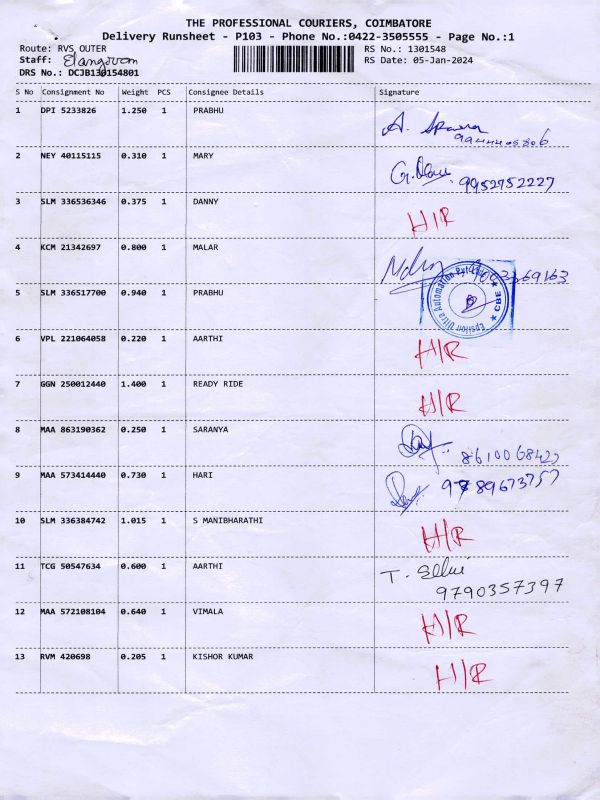 THE PROFESSIONAL COURIERS, COIMBATORE
Delivery Runsheet - P103 - Phone No.:0422-3505555 - Page No.:1
Route: RVS OUTER RS No.: 1301548
Staff: Elangovan RS Date: 05-Jan-2024
DRS No.: DCJB130154801
S No Consignment No Weight PCS Consignee Details Signature
1 DPI 5233826 1.250 1 PRABHU
2 NEY 40115115 0.310 1 MARY
9952752227
3 SLM 336536346 0.375 1 DANNY H/R
4 KCM 21342697 0.800 1 MALAR
5 SLM 336517700 0.940 1 PRABHU
Epsilon Ultra Automation Pvt Ltd ★ CBE ★
6 VPL 221064058 0.220 1 AARTHI H/R
7 GGN 250012440 1.400 1 READY RIDE H/R
8 MAA 863190362 0.250 1 SARANYA
9 MAA 573414440 0.730 1 HARI
10 SLM 336384742 1.015 1 S MANIBHARATHI H/R
11 TCG 50547634 0.600 1 AARTHI T. Selvi
9790357397
12 MAA 572108104 0.640 1 VIMALA H/R
13 RVM 420698 0.205 1 KISHOR KUMAR H/R